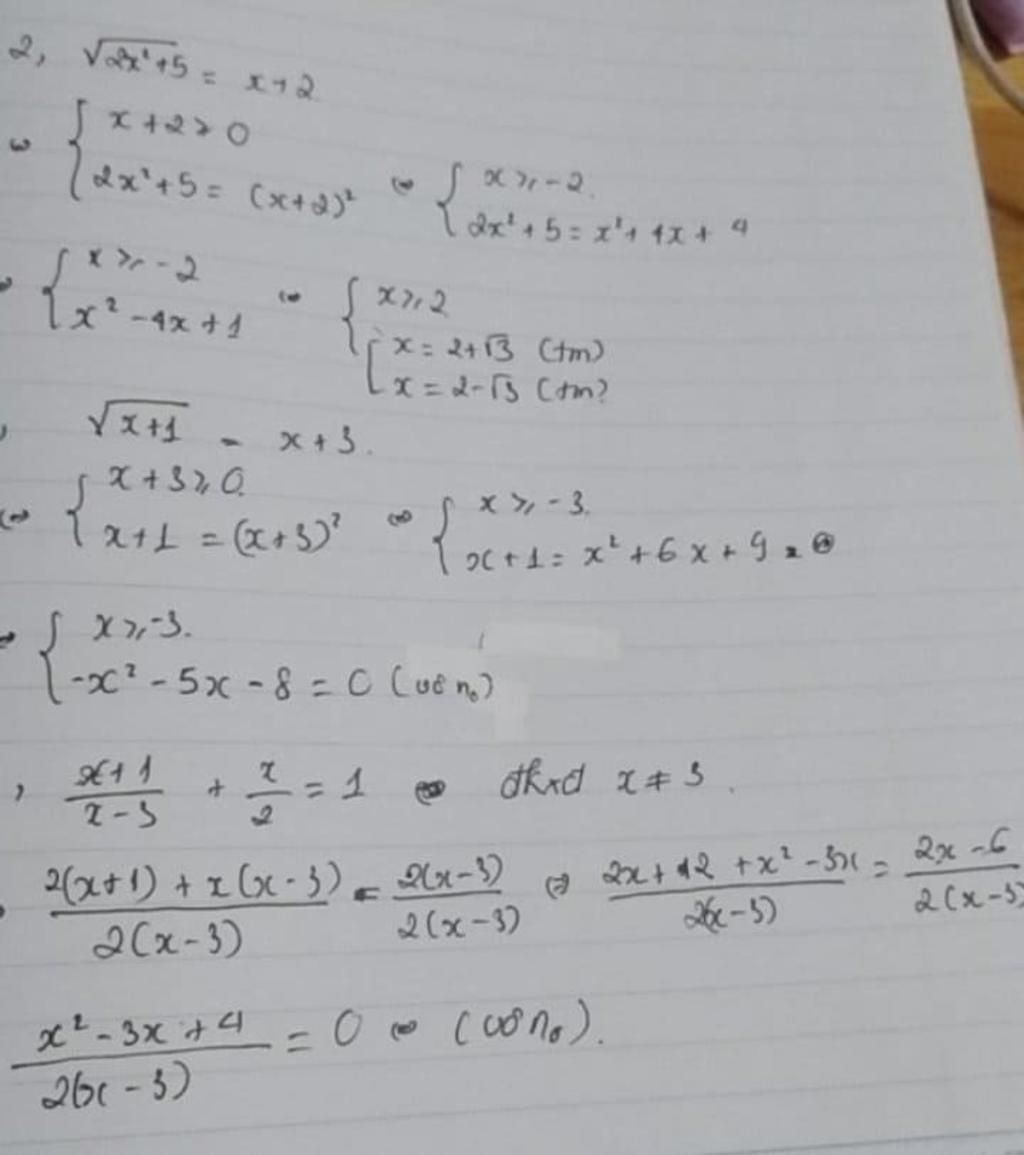 2, √(2x²+5) = x+2
⇔ { x+2 ≥ 0
{ 2x²+5 = (x+2)² ⇔ { x ≥ -2.
{ 2x²+5 = x²+4x+4
⇔ { x ≥ -2
{ x² -4x+1 ⇔ { x ≥ 2
[ x = 2+√3 (tm)
[ x = 2-√3 (tm)
, √(x+1) = x+3.
⇔ { x+3 ≥ 0
{ x+1 = (x+3)² ⇔ { x ≥ -3.
{ x+1 = x²+6x+9
⇔ { x ≥ -3.
{ -x² -5x -8 = 0 (vô n₀)
, (x+1)/(x-3) + x/2 = 1 ⇔ đkxđ x ≠ 3.
⇔ (2(x+1) + x(x-3))/(2(x-3)) = (2(x-3))/(2(x-3)) ⇔ (2x+2+x²-3x)/(2(x-3)) = (2x-6)/(2(x-3))
(x²-3x+4)/(2(x-3)) = 0 ⇔ (vô n₀).